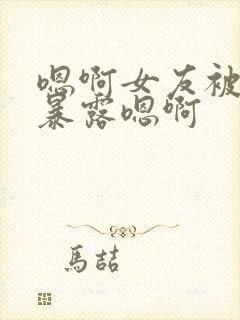 嗯啊女友被
暴露嗯啊
馬喆